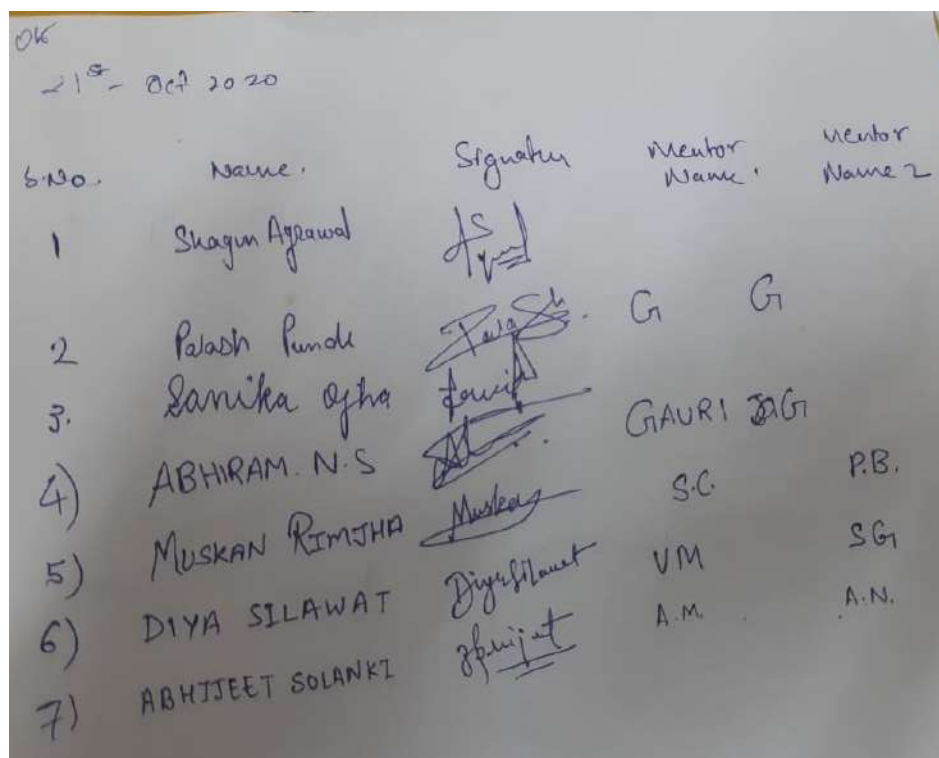 OK
21st - Oct 2020
S.No. Name. Signature Mentor Name. Mentor Name 2
1 Shagun Agrawal
2 Palash Punde Palash. G G
3. Sanika Ojha
4) ABHIRAM. N.S GAURI JAG
5) MUSKAN RIMJHA Muskan S.C. P.B.
6) DIYA SILAWAT Diya Silawat VM SG
7) ABHIJEET SOLANKI Abhijeet A.M. A.N.